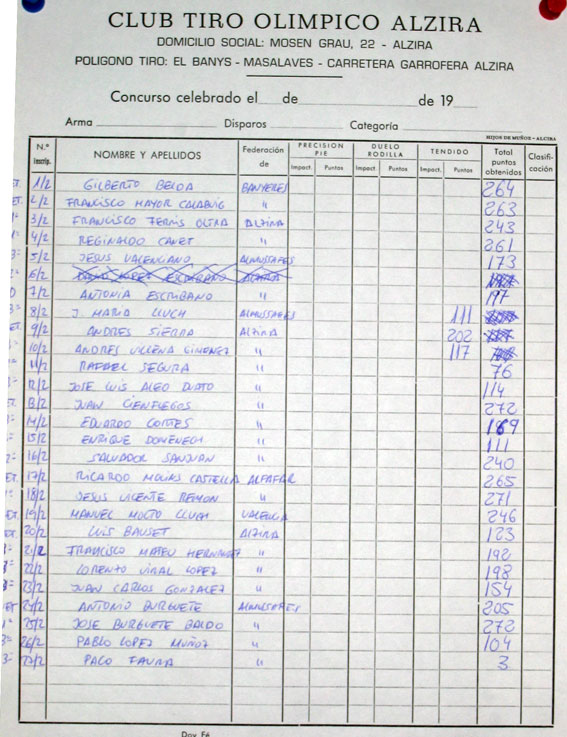 CLUB TIRO OLIMPICO ALZIRA
DOMICILIO SOCIAL: MOSEN GRAU, 22 - ALZIRA
POLIGONO TIRO: EL BANYS - MASALAVES - CARRETERA GARROFERA ALZIRA
Concurso celebrado el de de 19
Arma Disparos Categoría
HIJOS DE MUÑOZ - ALCIRA
N.º Inscrip. NOMBRE Y APELLIDOS Federación de PRECISION PIE DUELO RODILLA TENDIDO Total puntos obtenidos Clasificación
Impact. Puntos Impact. Puntos Impact. Puntos
1/2 GILBERTO BELDA BANYERES 264
2/2 FRANCISCO MAYOR CALABUIG " 263
3/2 FRANCISCO FERRIS OLTRA ALZIRA 243
4/2 REGINALDO CANET " 261
5/2 JESUS VALENCIANO ALMUSAFES 173
6/2
7/2 ANTONIA ESCRIBANO " 197
8/2 J. MARIA LLUCH ALMUSSAFES 111
9/2 ANDRES SIERRA ALZIRA 202
10/2 ANDRES VILLENA GIMENEZ " 117
11/2 RAFAEL SEGURA " 76
12/2 JOSE LUIS ALEO DATO " 114
13/2 JUAN CIENFUEGOS " 272
14/2 EDUARDO CORTES " 189
15/2 ENRIQUE DOMENECH " 111
16/2 SALVADOR SANJUAN " 240
17/2 RICARDO MOLINS CASTELLA ALFAFAR 265
18/2 JESUS VICENTE REMON " 271
19/2 MANUEL MOLTO LLUCH VALENCIA 246
20/2 LUIS BAUSET ALZIRA 123
21/2 FRANCISCO MATEU HERNANDEZ " 192
22/2 LORENTO VIRAL LOPEZ " 198
23/2 JUAN CARLOS GONZALEZ " 154
24/2 ANTONIO BURGUETE ALMUSSAFES 205
25/2 JOSE BURGUETE BALDO " 272
26/2 PABLO LOPEZ MUÑOZ " 104
27/2 PACO FAURA " 3
Doy Fé